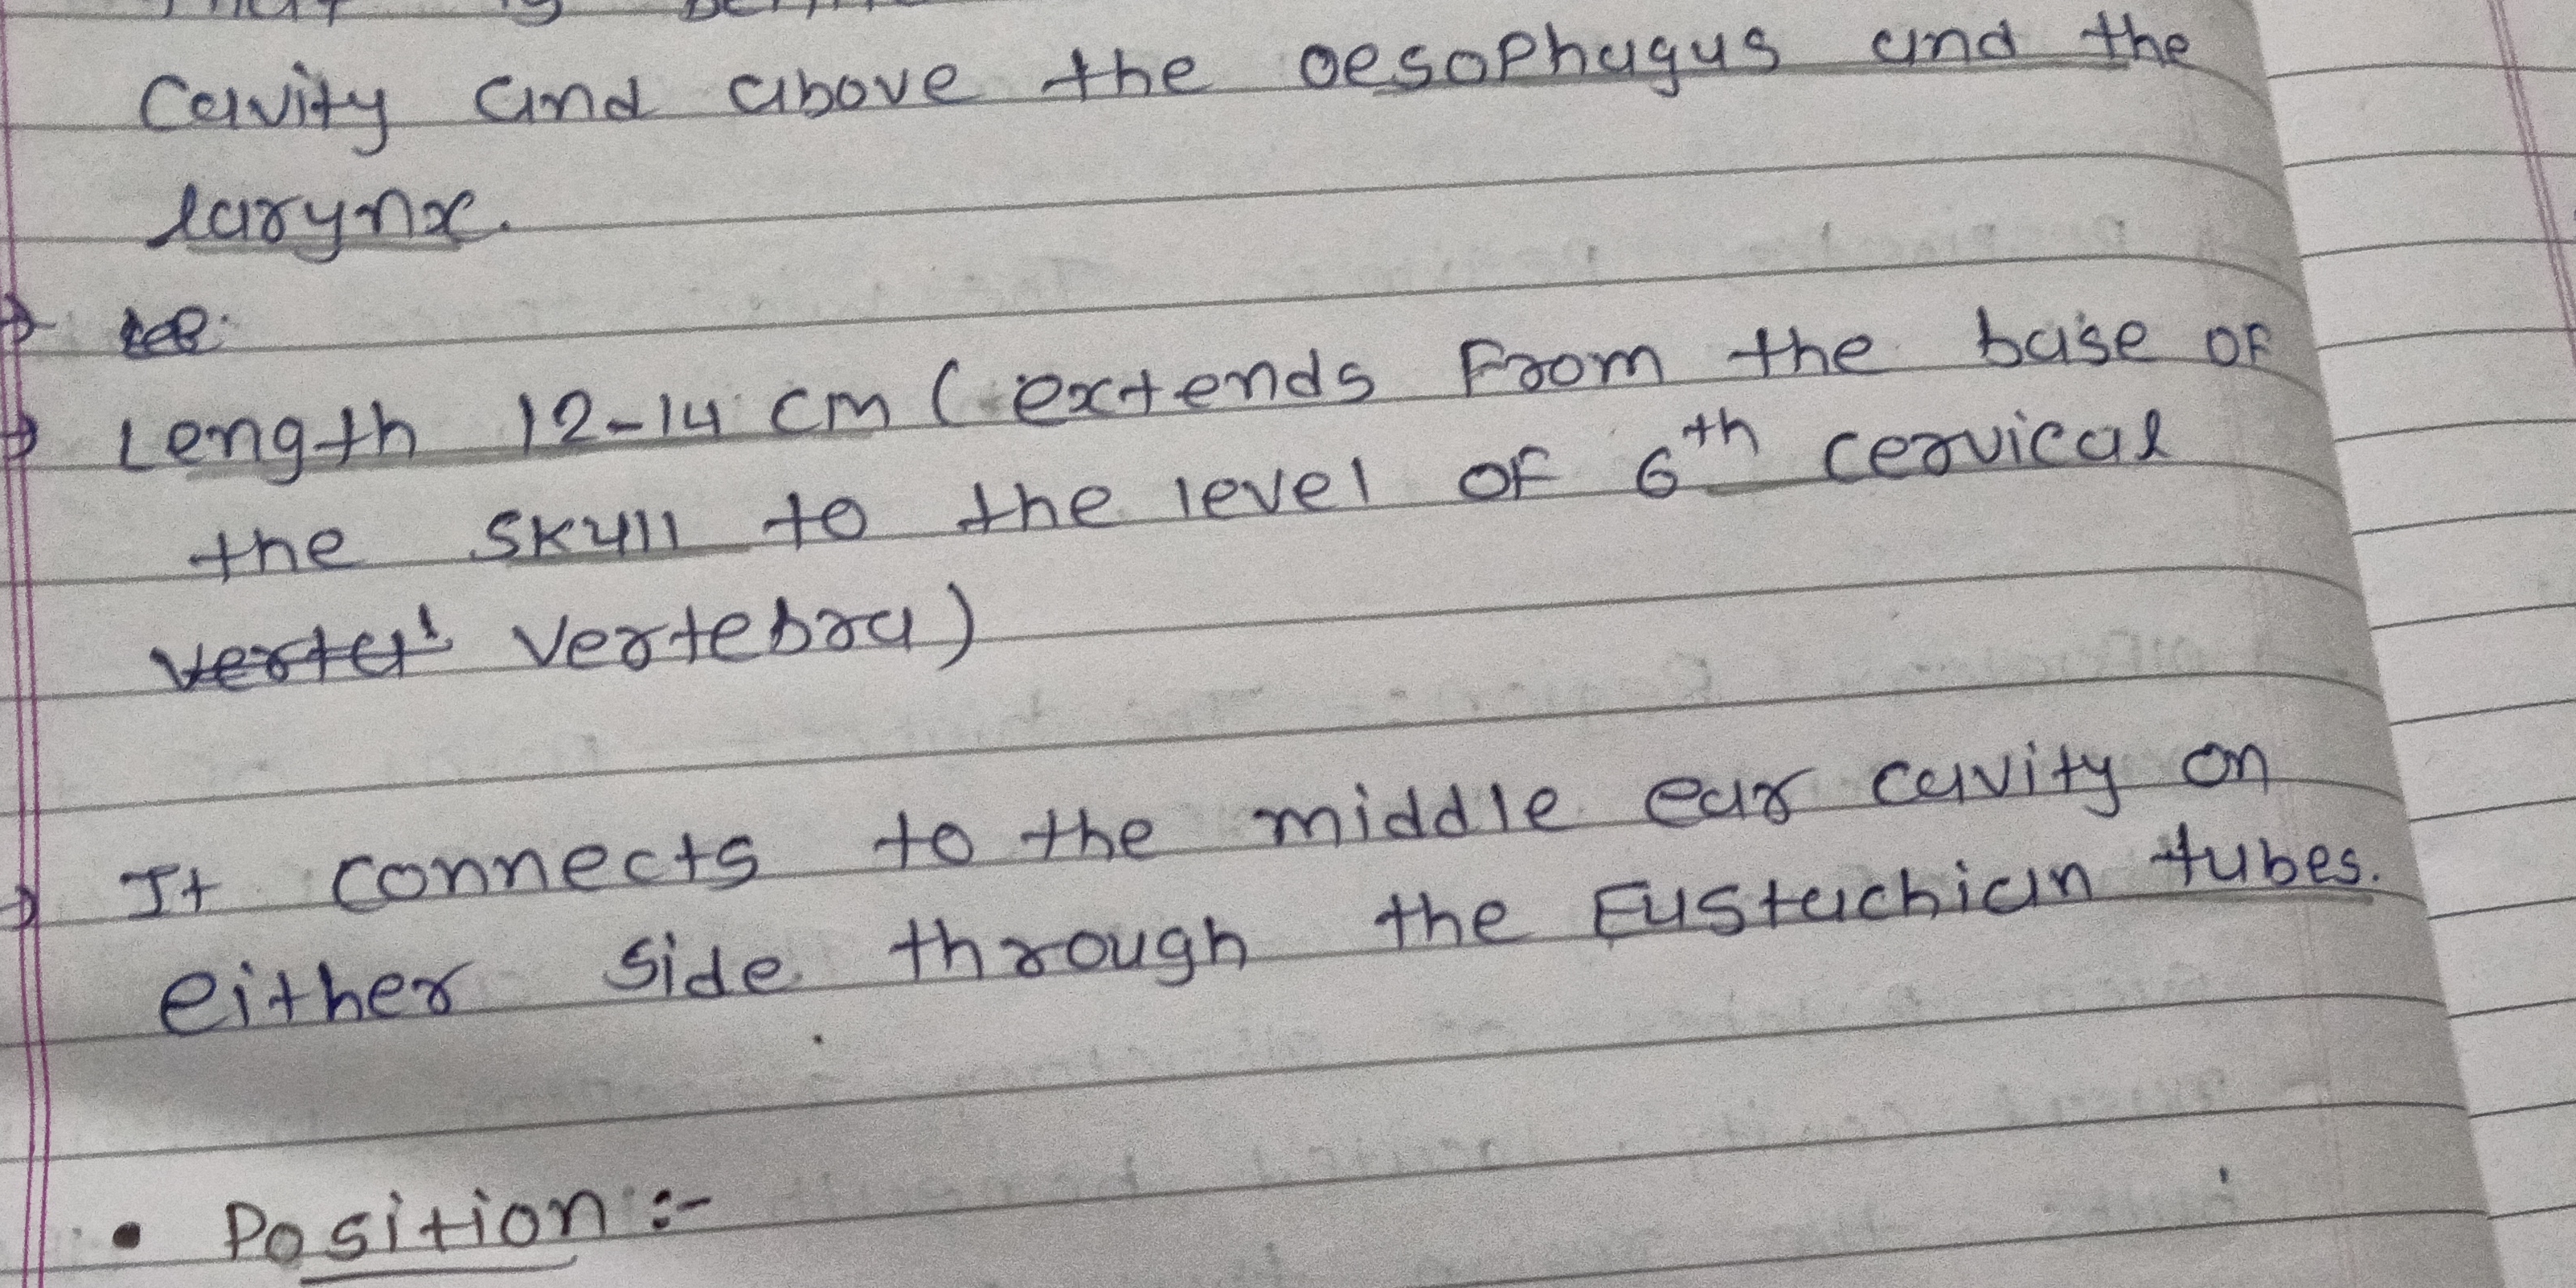 cavity and above the oesophagus and the
larynx.
→
→ Length 12-14 cm (extends from the base of
the skull to the level of 6th cervical
vertebra)
→ It connects to the middle ear cavity on
either side through the Eustachian tubes.
• Position :-